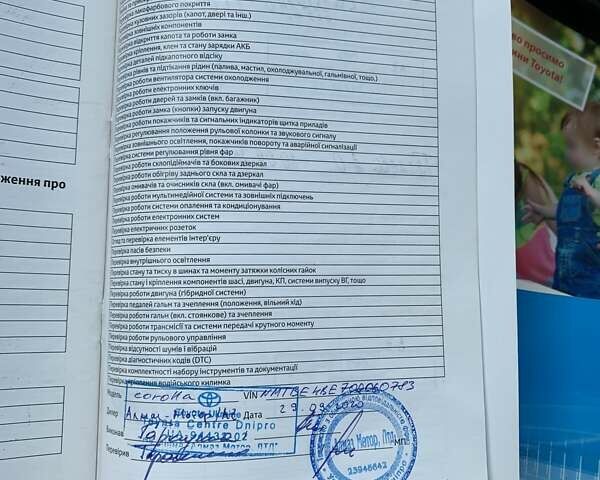 лакофарбового покриття
кузовних зазорів (капот, двері та інш.)
зовнішніх компонентів
відкриття капота та роботи замка
кріплення, клем та стану зарядки АКБ
деталей підкапотного відсіку
рівнів та підтікання рідин (палива, мастил, охолоджувальної, гальмівної, тощо.)
роботи вентилятора системи охолодження
роботи електронних ключів
Перевірка роботи дверей та замків (вкл. багажник)
Перевірка роботи замка (кнопки) запуску двигуна
Перевірка роботи покажчиків та сигнальних індикаторів щитка приладів
Перевірка регулювання положення рульової колонки та звукового сигналу
Перевірка зовнішнього освітлення, покажчиків повороту та аварійної сигналізації
Перевірка системи регулювання рівня фар
Перевірка роботи склопідіймачів та бокових дзеркал
Перевірка роботи обігріву заднього скла та дзеркал
Перевірка омивачів та очисників скла (вкл. омивачі фар)
Перевірка роботи мультимедійної системи та зовнішніх підключень
Перевірка роботи системи опалення та кондиціонування
Перевірка роботи електронних систем
Перевірка електричних розеток
Огляд та перевірка елементів інтер'єру
Перевірка пасів безпеки
Перевірка внутрішнього освітлення
Перевірка стану та тиску в шинах та моменту затяжки колісних гайок
Перевірка стану і кріплення компонентів шасі, двигуна, КП, системи випуску ВГ, тощо
Перевірка роботи двигуна (гібридної системи)
Перевірка педалей гальм та зчеплення (положення, вільний хід)
Перевірка роботи гальм (вкл. стоянкове) та зчеплення
Перевірка роботи трансмісії та системи передачі крутного моменту
Перевірка роботи рульового управління
Перевірка відсутності шумів і вібрацій
Перевірка діагностичних кодів (DTC)
Перевірка комплектності набору інструментів та документації
Перевірка кріплення водійського килимка
Модель corolla VIN
Дилер Дата 29 09 2020
Centre Dnipro
Виконав
Алмаз Мотор, ЛТД"
Перевірив
МП
Алмаз Мотор, Лтд
23945642
ження про
во просимо
ини Toyota!